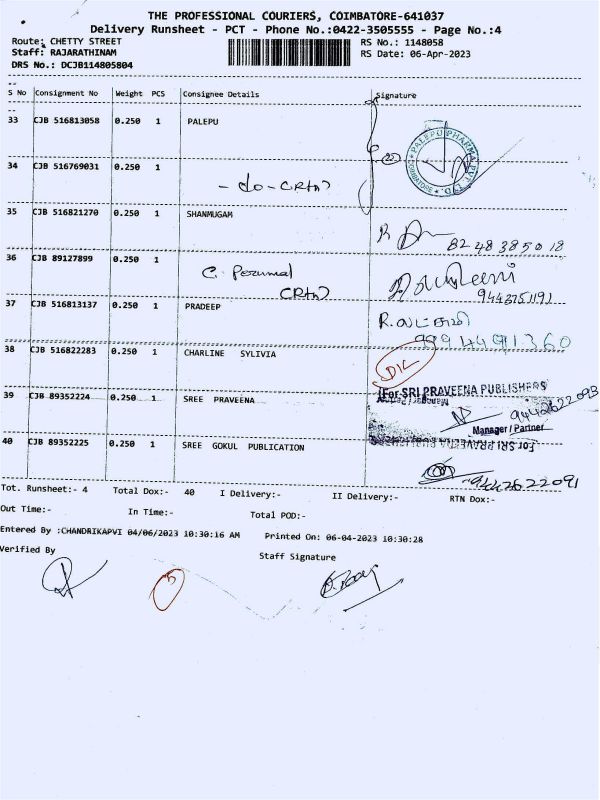 THE PROFESSIONAL COURIERS, COIMBATORE-641037
Delivery Runsheet - PCT - Phone No.:0422-3505555 - Page No.:4
Route: CHETTY STREET RS No.: 1148058
Staff: RAJARATHINAM RS Date: 06-Apr-2023
DRS No.: DCJB114805804
S No Consignment No Weight PCS Consignee Details Signature
33 CJB 516813058 0.250 1 PALEPU
PALEPU PHARMA PVT. LTD.
COIMBATORE
34 CJB 516769031 0.250 1
- do -
35 CJB 516821270 0.250 1 SHANMUGAM
82 48 385018
36 CJB 89127899 0.250 1
C. Perumal
9443751191
37 CJB 516813137 0.250 1 PRADEEP
R.லட்சுமி
9994491360
38 CJB 516822283 0.250 1 CHARLINE SYLIVIA
D/L
For SRI PRAVEENA PUBLISHERS
Manager/Partner
39 CJB 89352224 0.250 1 SREE PRAVEENA
9442622093
Manager/Partner
For SRI PRAVEENA PUBLISHERS
40 CJB 89352225 0.250 1 SREE GOKUL PUBLICATION
9442622091
Tot. Runsheet:- 4 Total Dox:- 40 I Delivery:- II Delivery:- RTN Dox:-
Out Time:- In Time:- Total POD:-
Entered By :CHANDRIKAPVI 04/06/2023 10:30:16 AM Printed On: 06-04-2023 10:30:28
Verified By Staff Signature